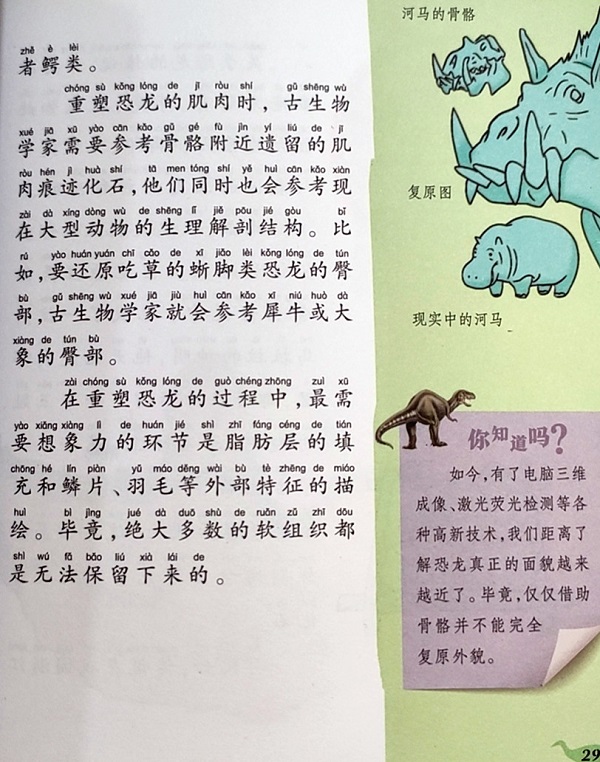 zhě è lèi
者鳄类。
chóng sù kǒng lóng de jī ròu shí gǔ shēng wù
重塑恐龙的肌肉时，古生物
xué jiā xū yào cān kǎo gǔ gé fù jìn yí liú de jī
学家需要参考骨骼附近遗留的肌
ròu hén jì huà shí tā men tóng shí yě huì cān kǎo xiàn
肉痕迹化石，他们同时也会参考现
zài dà xíng dòng wù de shēng lǐ jiě pōu jié gòu bǐ
在大型动物的生理解剖结构。比
rú yào huán yuán chī cǎo de xī jiǎo lèi kǒng lóng de tún
如，要还原吃草的蜥脚类恐龙的臀
bù gǔ shēng wù xué jiā jiù huì cān kǎo xī niú huò dà
部，古生物学家就会参考犀牛或大
xiàng de tún bù
象的臀部。
zài chóng sù kǒng lóng de guò chéng zhōng zuì xū
在重塑恐龙的过程中，最需
yào xiǎng xiàng lì de huán jié shì zhī fáng céng de tián
要想象力的环节是脂肪层的填
chōng hé lín piàn yǔ máo děng wài bù tè zhēng de miáo
充和鳞片、羽毛等外部特征的描
huì bì jìng jué dà duō shù de ruǎn zǔ zhī dōu
绘。毕竟，绝大多数的软组织都
shì wú fǎ bǎo liú xià lái de
是无法保留下来的。
河马的骨骼
复原图
现实中的河马
你知道吗？
如今，有了电脑三维
成像、激光荧光检测等各
种高新技术，我们距离了
解恐龙真正的面貌越来
越近了。毕竟，仅仅借助
骨骼并不能完全
复原外貌。
29